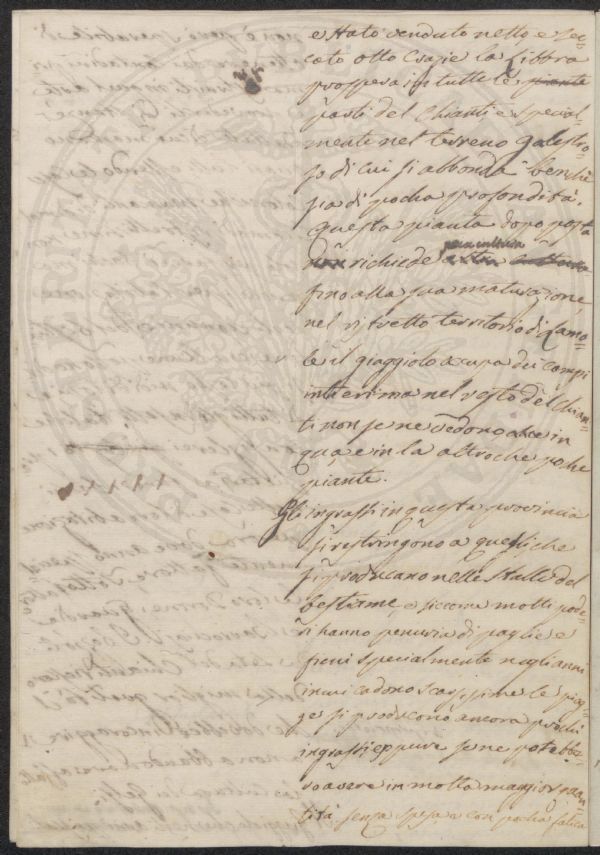 e stato venduto netto e sec=
cato otto Crazie la Libbra
prospera in tutte le piante
parti del Chianti e special
mente nel terreno galestro=
so di cui si abbonda benchè
sia di pocha profondità.
Questa pianta dopo posta
non richiede altra
poca cultura
fino alla sua maturazione,
nel ristretto territorio di Lamo=
le il giaggiolo ocupa dei campi
intieri ma nel resto del chian=
ti non se ne vedono che in
qua e in la altro che poche
piante.
Gli ingrassi in questa provincia
si restringono a quelli che
si producano nelle stalle del
bestiame, e siccome molti pode=
ri hanno penuria di paglie e
fieni specialmente negli anni
in cui cadono scarsissime le piog=
ge si produscono ancora pochi
ingrassi eppure se ne potebbe=
ro avere in molta maggior quan=
tità senza spesa e con pocha fatica